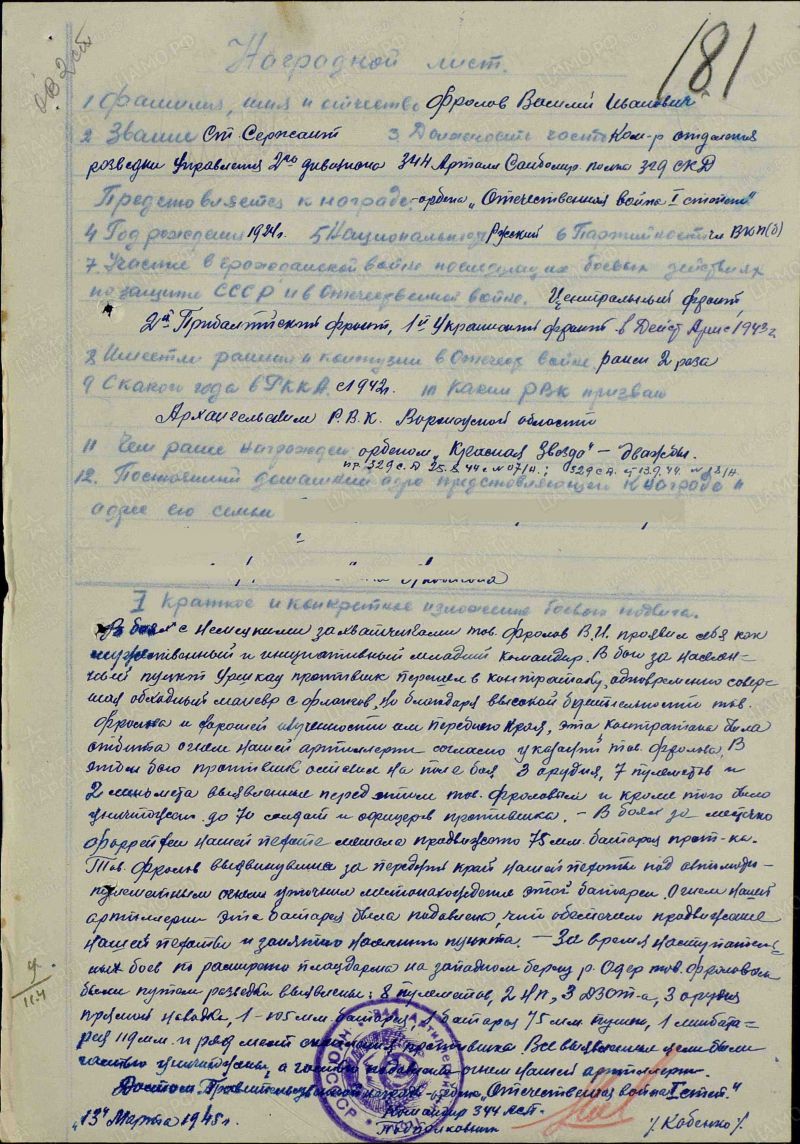 181
ОВ 2 ст
Наградной лист.
1 Фамилия, имя и отчество Фролов Василий Иванович
2 Звание Ст. Сержант 3 Должность часть Ком-р отделения
розведки Управления 2го дивизиона 344 Артилл Сандомир. полка 329 СКД
Представляется к награде - ордена „Отечественная война I степени"
4 Год рождения 1924г. 5 Национальность Русский 6 Партийность чл ВКП(б)
7 Участие в гражданской войне последующих боевых действиях
по защите СССР и в Отечественной войне. Центральный фронт,
2й Прибалтийский фронт, 1й Украинский фронт в Дейст Арм с 1943 г.
8 Имеет ли ранения и контузии в Отечест войне ранен 2 раза
9 С какого года в РККА с 1942г. 10 Каким РВК призван
Архангельским Р.В.К. Воронежской области
11 Чем ранее награжден орденом „Красная Звезда" – дважды.
пр. 329 с.д. 07/н.; 329 с.д. 13.9.44. № 18/н.
12. Постоянный домашний адре представляющего к награде и
адрес его семьи
I Краткое и конкретное изложение боевого подвига.
В боях с немецкими захватчиками тов. Фролов В.И. проявил себя как
мужественный и инициативный младший командир. В бою за населен-
ный пункт противник перешел в контратаку, одновременно совер-
шая обходный маневр с флангов, но благодаря высокой бдительности тов.
Фролова и хорошей изученности им переднего края, эта контратака была
отбита огнем нашей артиллерии согласно указаний тов. Фролова. В
этом бою противник оставил на поле боя 3 орудия, 7 пулеметов и
2 миномета выявленные перед этим тов. Фроловым и кроме того было
уничтожено до 70 солдат и офицеров противника. – В боях за местечко
нашей пехоте мешала продвижению 75 мм. батарея прот-ка.
Тов. Фролов выдвинувшись за передний край нашей пехоты под автоматно-
пулеметным огнем уточнил местонахождение этой батареи. Огнем нашей
артиллерии эта батарея была подавлена, чем обеспечено продвижение
нашей пехоты и занятию населенного пункта. – За время наступатель-
ных боев по расширению плацдарма на западном берегу р. Одер тов. Фроловым
были путем разведки выявлены: 8 пулеметов, 2 НП, 3 ДЗОТ-а, 3 орудия
прямой наводки, 1 – 105 мм. батарея, 1 батарея 75 мм. пушек, 1 минбата-
рея и ряд мест скопления противника. Все выявленные цели были
частью уничтожены, а частью подавлены огнем нашей артиллерии.
Достоин Правительственной награды – ордена „Отечественная война I степ."
Командир 344 АСП.
„13" Марта 1945г. Подполковник /Кобенко/.